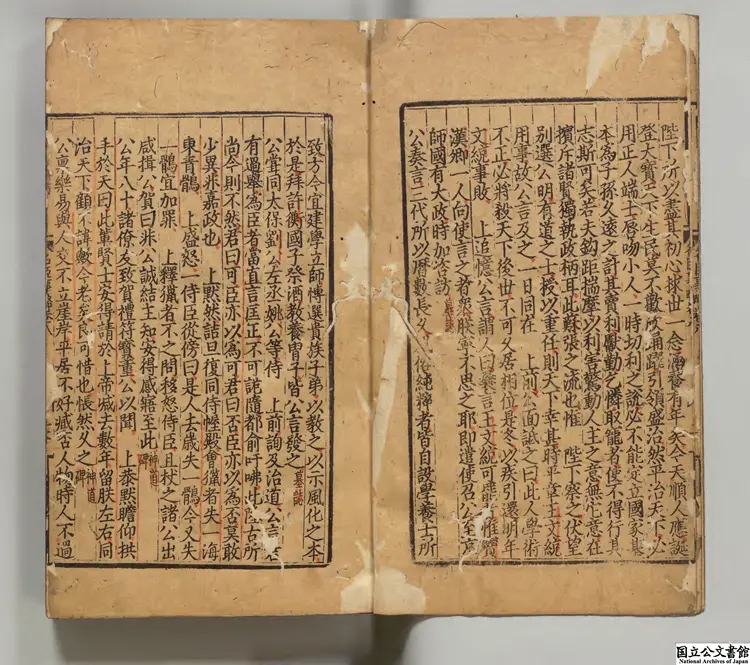 陛下所以盡其初心救世一念涵養有年矣今天順人應誕
登大寶天下生民莫不歡忻踊躍引領盛治然平治天下必
用正人端士唇吻小人一時功利之說必不能定立國家基
本為子孫久遠之計其賣利獻勤乞憐取寵者使不得行其
志斯可矣若夫鈎距揣摩以利害驚動人主之意無它意在
擯斥諸賢獨執政柄耳此蘇張之流也惟 陛下察之伏望
別選公明有道之士授以重任則天下幸甚時平章王文統
用事故公言及之一日同在 上前公面詆之曰此人學術
不正必將殺天下後世不可久居相位是冬以疾引還明年
文統事敗 上追憶公言謂人曰曩言王文統可罷者惟竇
漢卿一人向使言之者衆朕寧不思之耶即遣使召公至京
師國有大政時加咨訪墓誌
公奏言三代所以曆數長久純粹者皆自設學養士所
致方今宜建學立師博選貴族子弟以教之以示風化之本
於是拜許衡國子祭酒教養胄子皆公言發之墓誌
公甞同太保劉公左丞姚公等侍 上前詢及治道公言君
有過舉為臣者當直言匡正不可詭隨都俞吁咈此隆古所
尚今則不然君曰可臣亦以為可君曰否臣亦以為否莫敢
少異非嘉政也 上默然詰旦復同侍幄殿會獵者失一海
東青鶻 上盛怒一侍臣從傍曰是人去歲失一鶻今又失
一鶻宜加罪 上釋獵者不之問移怒侍臣且杖之諸公出
咸揖公賀曰非公誠結主知安得感寤至此神道碑
公年八十諸僚友致賀禮符寶董公以聞 上恭默瞻仰拱
手於天曰此輩賢士安得請於上帝減去數年留朕左右同
治天下顧不 今老矣良可惜也悵然久之神道碑
公稟樂易與人交不立崖岸平居不好臧否人物時人不過
国立公文書館
National Archives of Japan